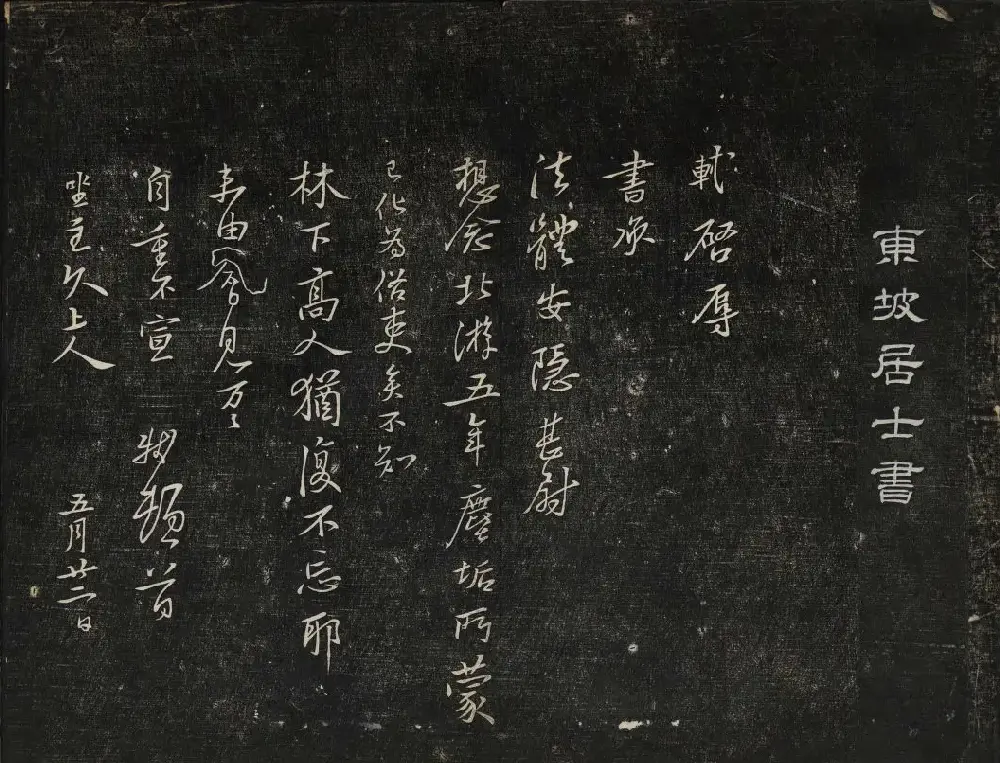 東坡居士書
軾啓辱
書承
法體安隱甚尉
想念北游五年塵垢所蒙
已化爲俗吏矣不知
林下高人猶復不忘耶
未由會見万万
自重不宣 軾頓首
坐主久上人 五月廿二日